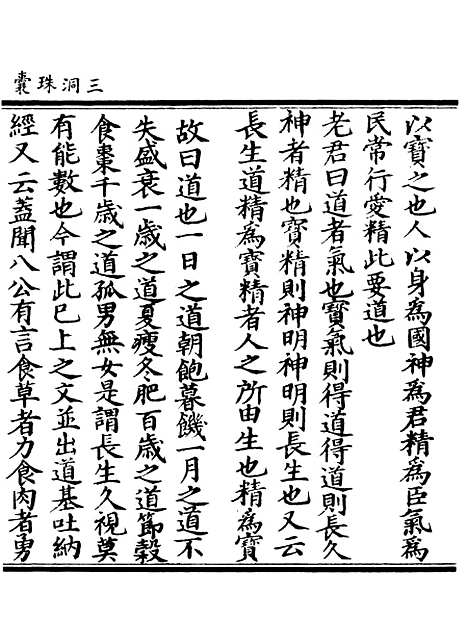 三洞珠囊
以寶之也人以身為國神為君精為臣氣為
民常行愛精此要道也
老君曰道者氣也寶氣則得道得道則長久
神者精也寶精則神明神明則長生也又云
長生道精為寶精者人之所由生也精為寶
故曰道也一日之道朝飽暮饑一月之道不
失盛衰一歲之道夏瘦冬肥百歲之道節穀
食棗千歲之道孤男無女是謂長生久視莫
有能數也今謂此巳上之文並出道基吐納
經又云蓋聞八公有言食草者力食肉者勇